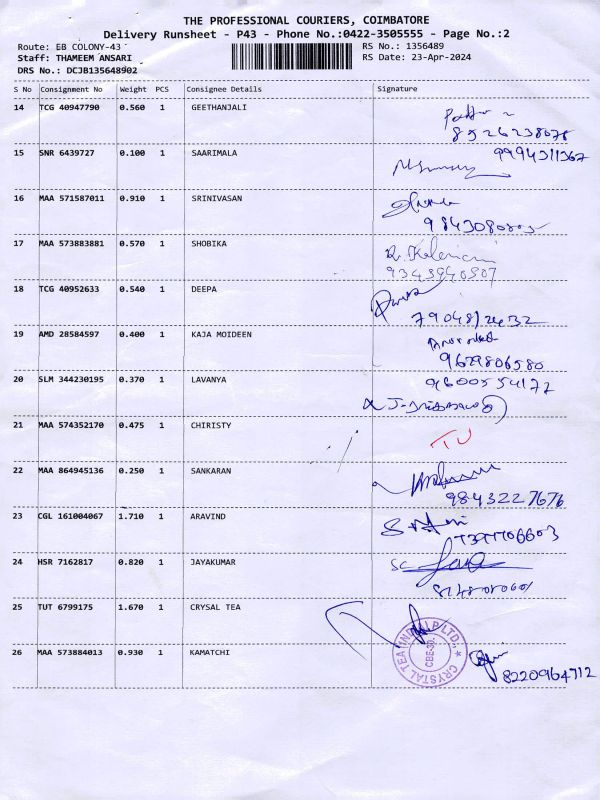 THE PROFESSIONAL COURIERS, COIMBATORE
Delivery Runsheet - P43 - Phone No.:0422-3505555 - Page No.:2
Route: EB COLONY-43
Staff: THAMEEM ANSARI
DRS No.: DCJB135648902
RS No.: 1356489
RS Date: 23-Apr-2024
S No Consignment No Weight PCS Consignee Details Signature
14 TCG 40947790 0.560 1 GEETHANJALI
8526238078
15 SNR 6439727 0.100 1 SAARIMALA
9994311367
16 MAA 571587011 0.910 1 SRINIVASAN
17 MAA 573883881 0.570 1 SHOBIKA
9343940307
18 TCG 40952633 0.540 1 DEEPA
19 AMD 28584597 0.400 1 KAJA MOIDEEN
9629806580
20 SLM 344230195 0.370 1 LAVANYA
9600554177
21 MAA 574352170 0.475 1 CHIRISTY
22 MAA 864945136 0.250 1 SANKARAN
9843227676
23 CGL 161004067 1.710 1 ARAVIND
24 HSR 7162817 0.820 1 JAYAKUMAR
25 TUT 6799175 1.670 1 CRYSAL TEA
26 MAA 573884013 0.930 1 KAMATCHI
8220964712